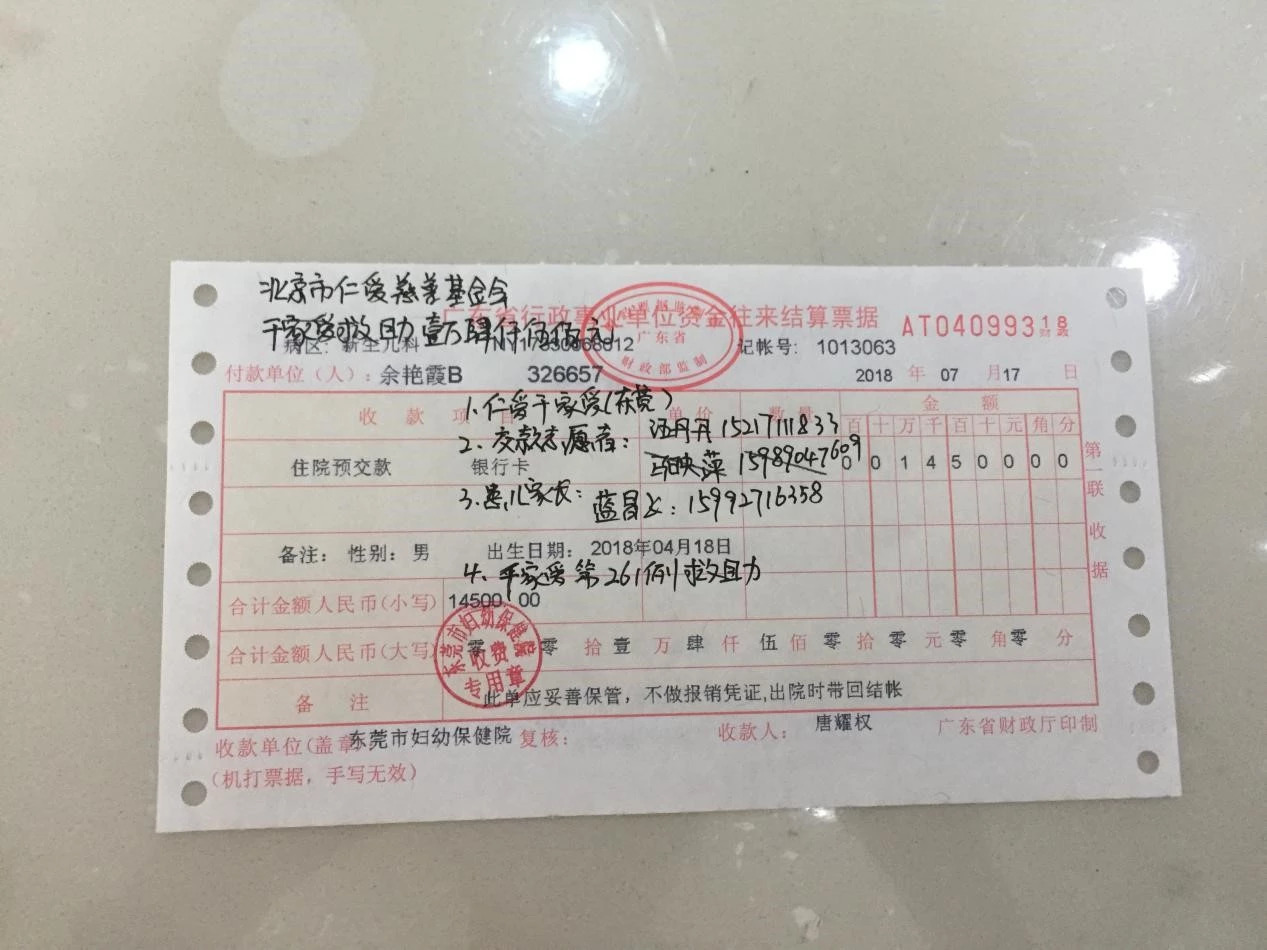 北京市仁爱慈善基金会
广东省行政事业单位资金往来结算票据
AT04099318
财政
千家爱救助壹万肆仟伍佰元
病区: 新生儿科
记帐号: 1013063
广东省
财政部监制
付款单位（人）: 余艳霞B 326657
2018 年 07 月 17 日
收 款 项 目 单 价 数 量 金 额
百 十 万 千 百 十 元 角 分
1、仁爱千家爱(东莞)
2、交款志愿者: 汪丹丹 15217111833
住院预交款 银行卡
映萍 15989047609
0 0 1 4 5 0 0 0 0
3、患儿家长: 蓝昌 : 15992716358
第一联 收据
备注: 性别: 男 出生日期: 2018年04月18日
4、千家爱第261例救助
合计金额人民币(小写) 14500.00
合计金额人民币(大写) 零 零 拾 壹 万 肆 仟 伍 佰 零 拾 零 元 零 角 零 分
东莞市妇幼保健院
收费
专用章
备 注 此单应妥善保管，不做报销凭证,出院时带回结帐
收款单位(盖章): 东莞市妇幼保健院 复核: 收款人: 唐耀权 广东省财政厅印制
(机打票据，手写无效)